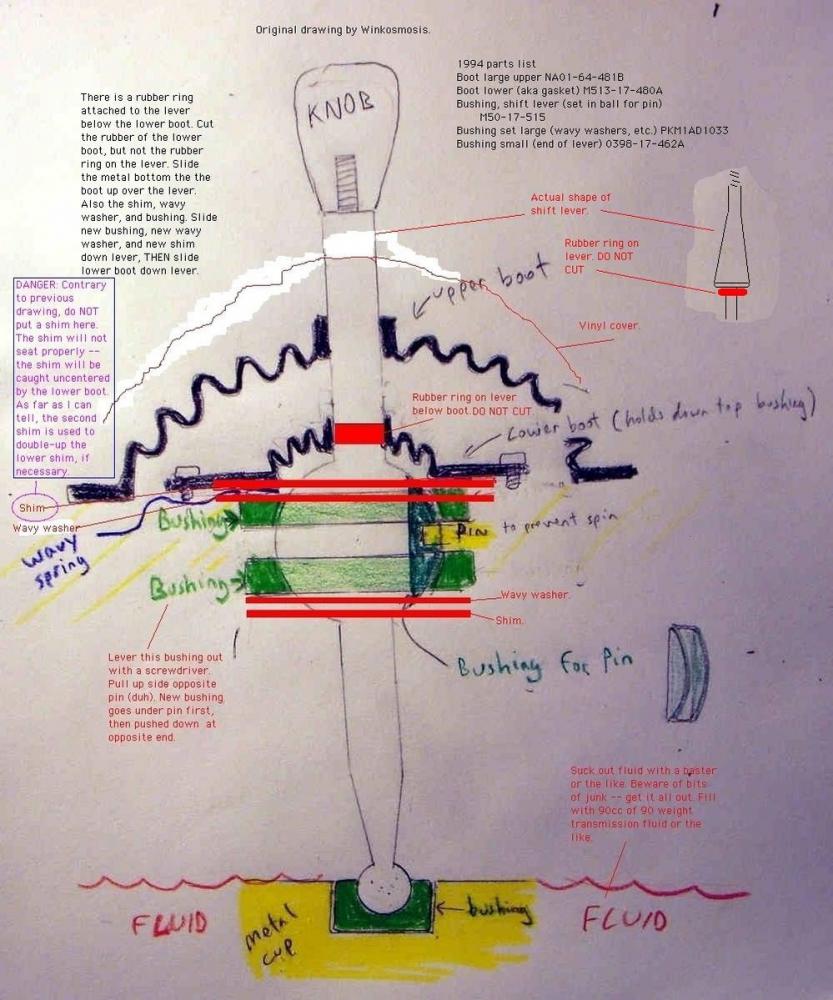 Original drawing by Winkosmosis.
1994 parts list
Boot large upper NA01-64-481B
Boot lower (aka gasket) M513-17-480A
Bushing, shift lever (set in ball for pin)
M50-17-515
Bushing set large (wavy washers, etc.) PKM1AD1033
Bushing small (end of lever) 0398-17-462A
There is a rubber ring
attached to the lever
below the lower boot. Cut
the rubber of the lower
boot, but not the rubber
ring on the lever. Slide
the metal bottom the the
boot up over the lever.
Also the shim, wavy
washer, and bushing. Slide
new bushing, new wavy
washer, and new shim
down lever, THEN slide
lower boot down lever.
KNOB
Actual shape of
shift lever.
Rubber ring on
lever. DO NOT
CUT
upper boot
Vinyl cover.
DANGER: Contrary
to previous
drawing, do NOT
put a shim here.
The shim will not
seat properly --
the shim will be
caught uncentered
by the lower boot.
As far as I can
tell, the second
shim is used to
double-up the
lower shim, if
necessary.
Rubber ring on lever
below boot. DO NOT CUT
Lower boot (holds down top bushing)
Shim
Wavy washer
wavy
spring
Bushing
Pin to prevent spin
Bushing
Wavy washer.
Shim.
Bushing For Pin
Lever this bushing out
with a screwdriver.
Pull up side opposite
pin (duh). New bushing
goes under pin first,
then pushed down at
opposite end.
Suck out fluid with a baster
or the like. Beware of bits
of junk -- get it all out. Fill
with 90cc of 90 weight
transmission fluid or the
like.
FLUID
metal
cup
bushing
FLUID